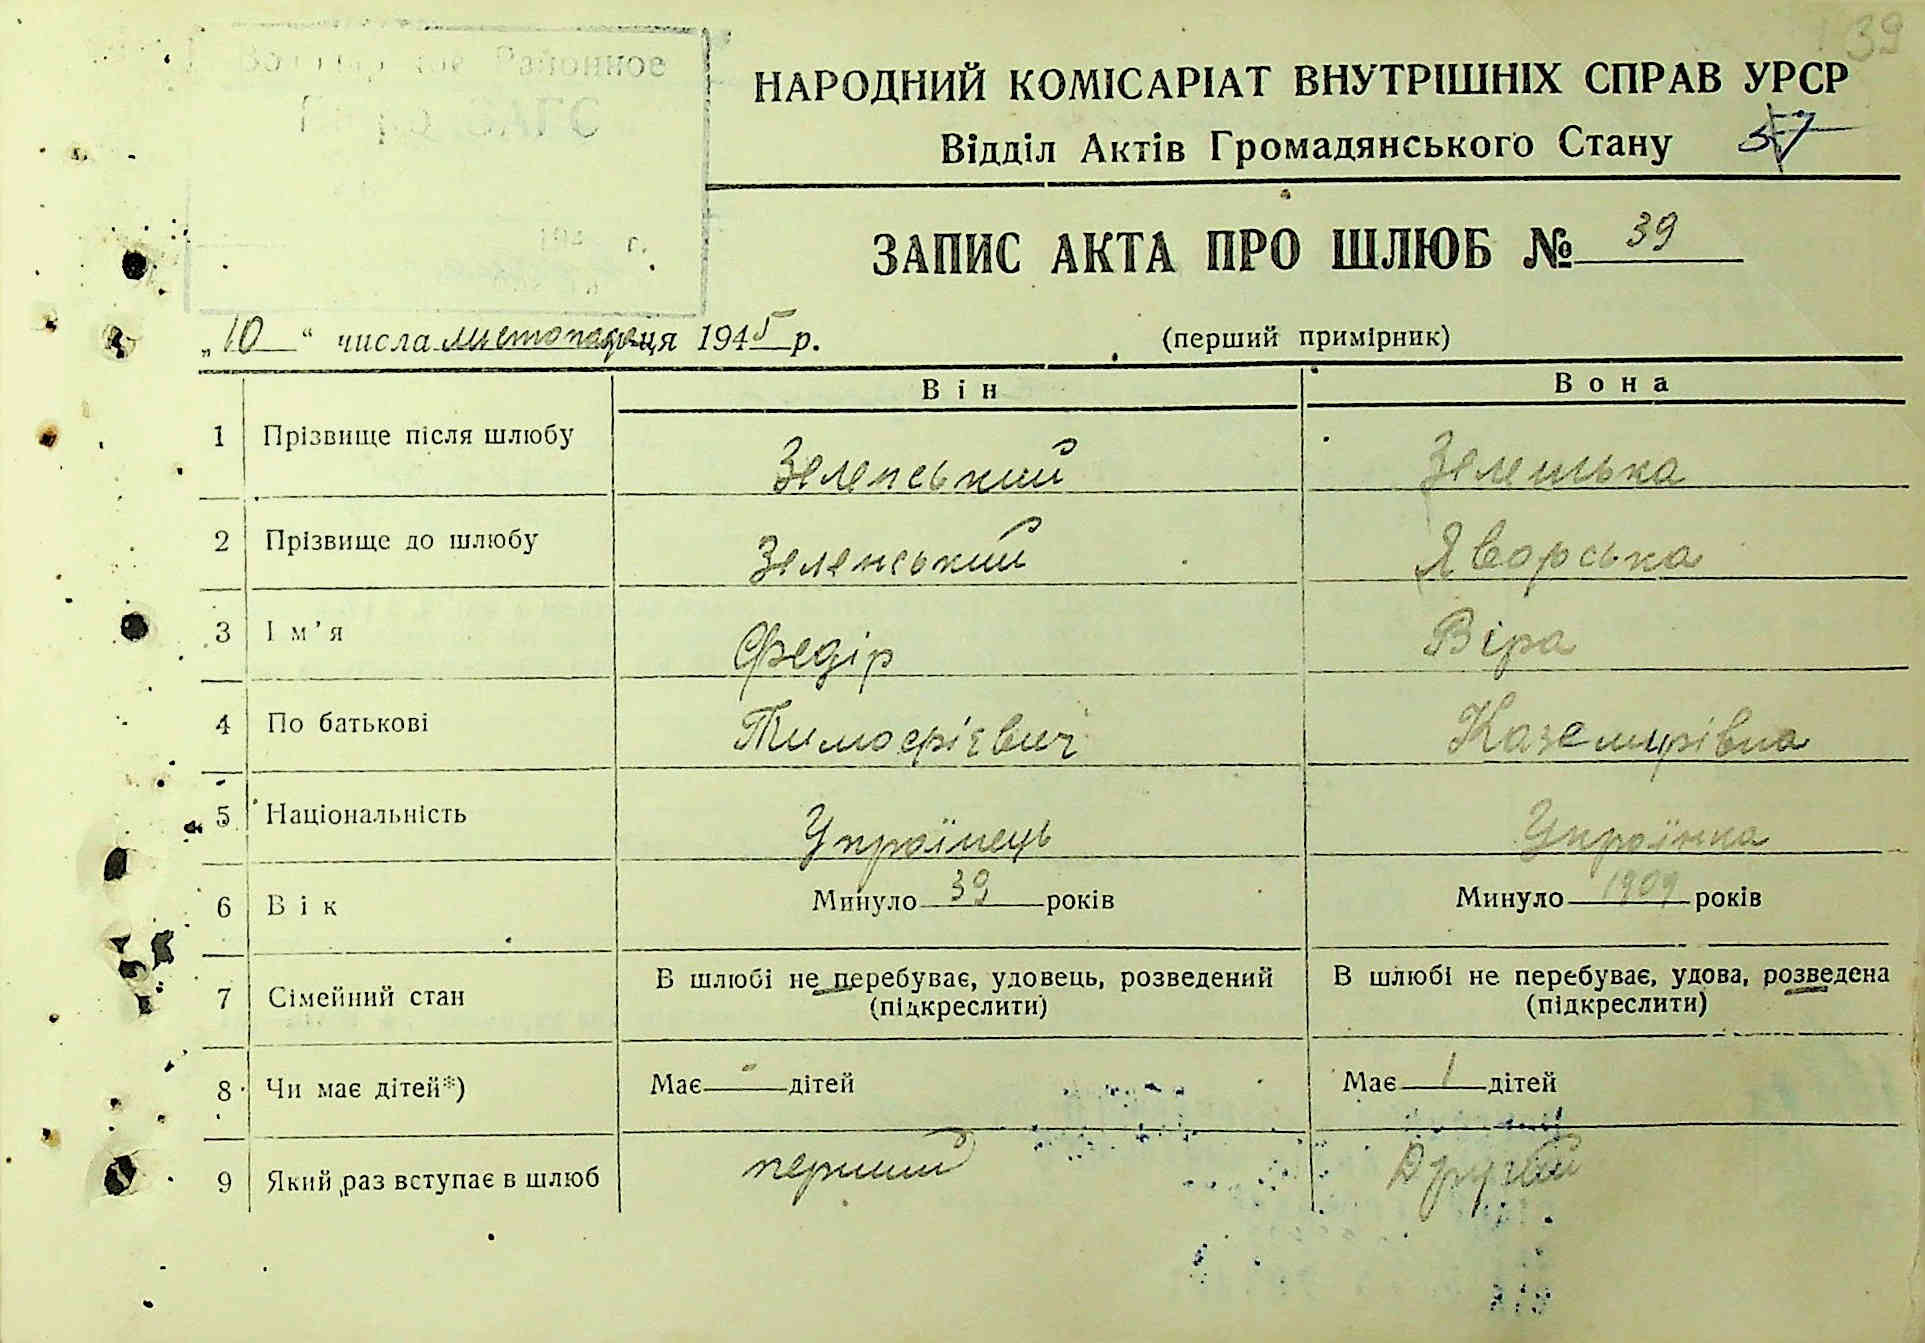 39
Районное
ЗАГС
194 г.
НАРОДНИЙ КОМІСАРІАТ ВНУТРІШНІХ СПРАВ УРСР
Відділ Актів Громадянського Стану 57
ЗАПИС АКТА ПРО ШЛЮБ № 39
„10“ числа листопада ця 1945 р. (перший примірник)
Він Вона
1 Прізвище після шлюбу Зеленський Зеленська
2 Прізвище до шлюбу Зеленський Яворська
3 Ім’я Федір Віра
4 По батькові Тимофієвич Каземирівна
5 Національність Українець Українка
6 Вік Минуло 39 років Минуло 1909 років
7 Сімейний стан В шлюбі не перебуває, удовець, розведений (підкреслити) В шлюбі не перебуває, удова, розведена (підкреслити)
8 Чи має дітей*) Має - дітей Має 1 дітей
9 Який раз вступає в шлюб перший Другий